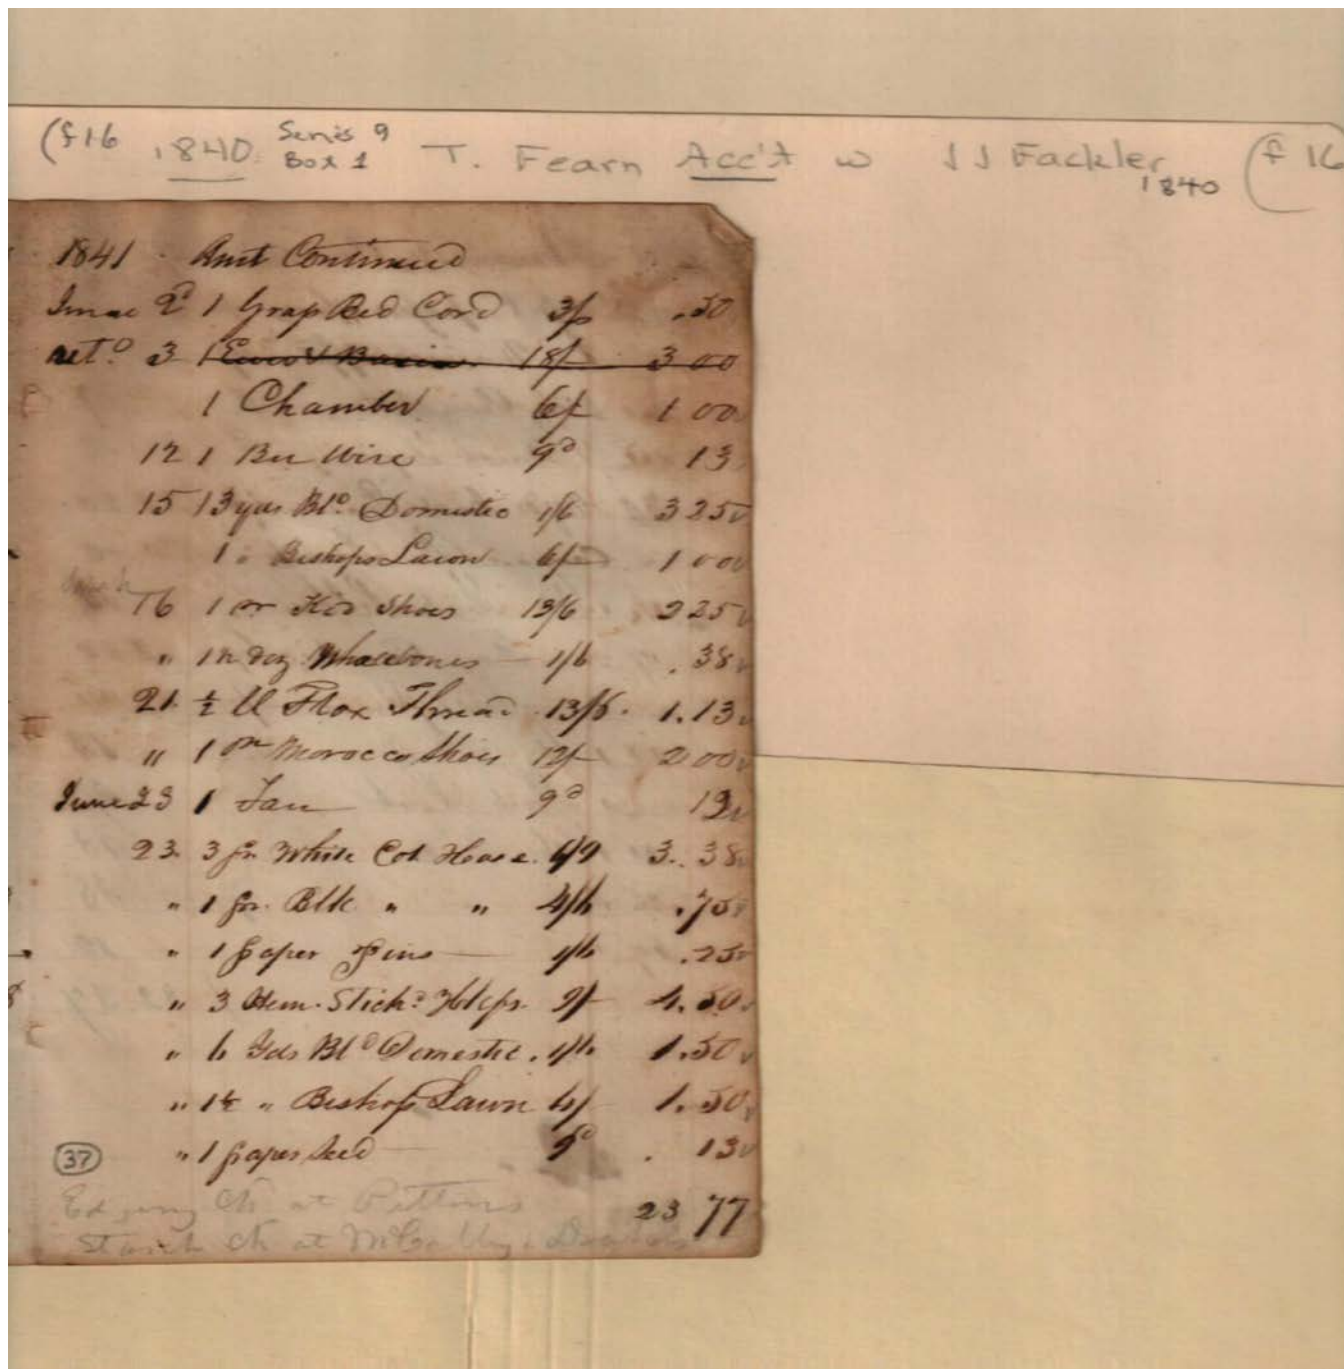 (f16 1840 Series 9 Box 1 T. Fearn Acc't w J J Fackler 1840 (f 16
1841 Amt Continued
June 2d 1 Grass Bed Cord 3/ .50
retd 3 1 Ewer & Basin 18/ 3 00
1 Chamber 6/ 1 00
12 1 Wire 9d 13
15 13 yds Bld Domestic 1/6 3 25
1 " Bishops Lawn 6/ 1 00
16 1 pr Kid Shoes 13/6 2 25
" doz Whalebones 1/6 . 38
21 ½ ll Flax Thread 13/6 . 1.13
" 1 pr Morocco Shoes 12/ 2 00
June 23 1 Fan 9d
23 3 pr White Cot Hose. 6/9 3. 38
" 1 pr. Blk " " 4/6 .75
" 1 paper Pins 1/6 .25
" 3 Hem. Stichd Hdkfs. 9/ 4. 50
" 6 Yds Bld Domestic. 1/6 1.50
" 1½ " Bishop Lawn 6/ 1. 50
(37) " 1 paper Seed 9d . 13
Edging at 23 77
Starch at